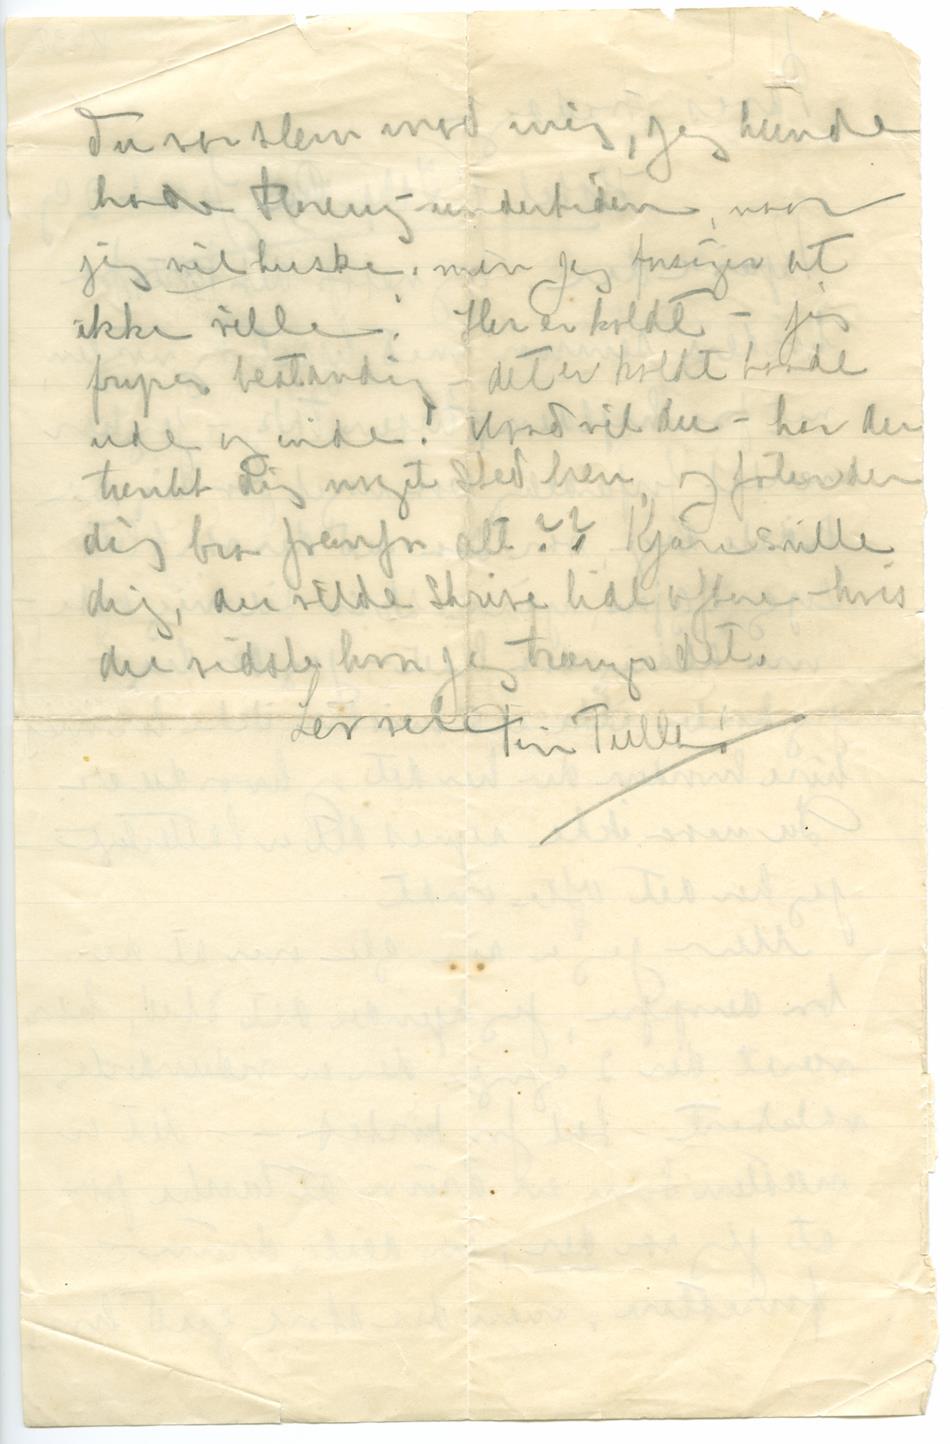 du var slem mod mig, jeg kunde
hade undertiden, naar
jeg vil huske. men jeg forsøger at
ikke ville! Her er koldt – jeg
fryser bestandig – det er koldt baade
ude og inde! Hvad vil du – har du
tænkt dig noget Sted hen, og
dig bra fremfor alt?? Kjære snille
dig, du vilde skrive lidt oftere – hvis
du vidste hvor jeg trænger det.
Lev vel Din Tulla!